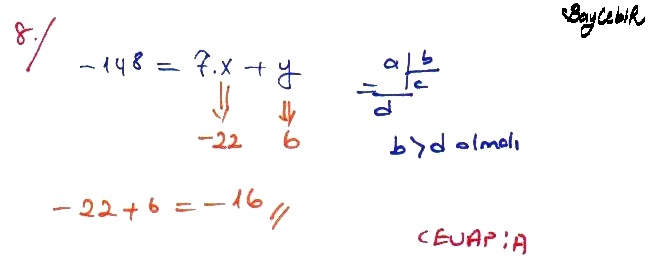 BayCebir
8./
-148 = 7.x + y
⇓ ⇓
-22 6
a b
c
= d
b > d olmalı
-22 + 6 = -16 //
CEVAP: A